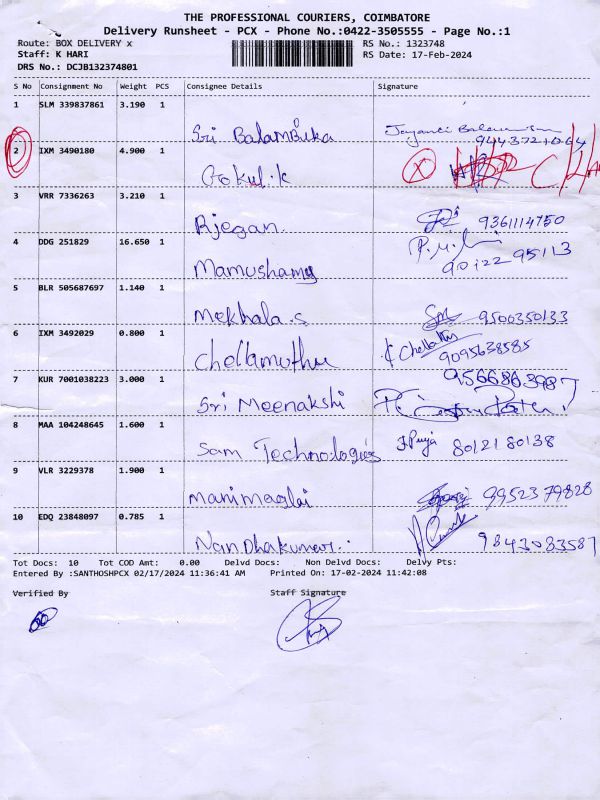 THE PROFESSIONAL COURIERS, COIMBATORE
Delivery Runsheet - PCX - Phone No.:0422-3505555 - Page No.:1
Route: BOX DELIVERY x RS No.: 1323748
Staff: K HARI RS Date: 17-Feb-2024
DRS No.: DCJB132374801
S No Consignment No Weight PCS Consignee Details Signature
1 SLM 339837861 3.190 1
Sri Balambika 9443721064
2 IXM 3490180 4.900 1
Gokul.K
3 VRR 7336263 3.210 1
Rjegan 9361114750
4 DDG 251829 16.650 1
Mamushamy 90122 95113
5 BLR 505687697 1.140 1
Mekhala.s 9500350133
6 IXM 3492029 0.800 1
Chellamuthu 9095638585
7 KUR 7001038223 3.000 1 9566863987
Sri Meenakshi
8 MAA 104248645 1.600 1
Sam Technologies 80121 80138
9 VLR 3229378 1.900 1
Manimaglai 99523 79828
10 EDQ 23848097 0.785 1
NanDhakumar. 9843083587
Tot Docs: 10 Tot COD Amt: 0.00 Delvd Docs: Non Delvd Docs: Delvy Pts:
Entered By :SANTHOSHPCX 02/17/2024 11:36:41 AM Printed On: 17-02-2024 11:42:08
Verified By Staff Signature